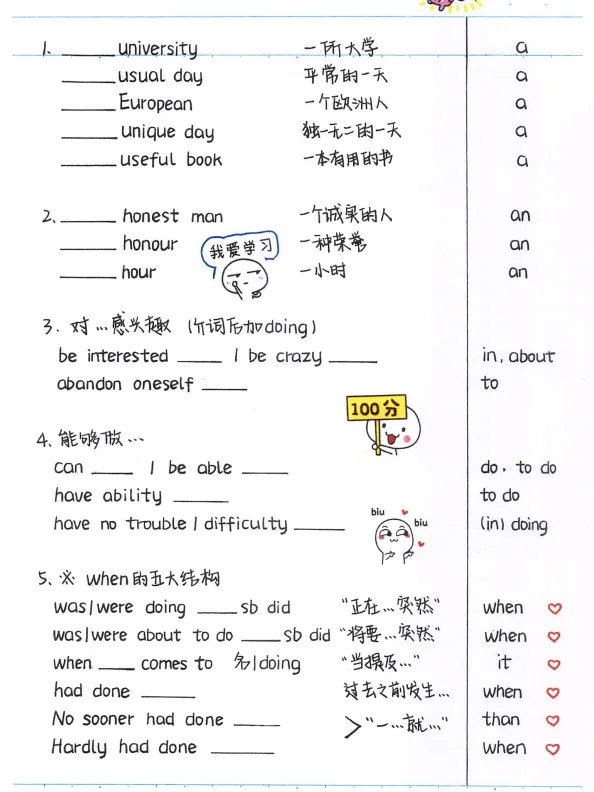 1. ______ university 一所大学 a
______ usual day 平常的一天 a
______ European 一个欧洲人 a
______ unique day 独一无二的一天 a
______ useful book 一本有用的书 a
2、______ honest man 一个诚实的人 an
______ honour 一种荣誉 an
我爱学习
______ hour 一小时 an
3. 对…感兴趣 (介词后加doing)
be interested _____ / be crazy _____ in, about
abandon oneself _____ to
100分
4、能够做…
can _____ / be able _____ do, to do
have ability ______ to do
have no trouble / difficulty ______ (in) doing
biu
biu
5、※ when的五大结构
was/were doing _____ sb did "正在…突然" when
was/were about to do _____ sb did "将要…突然" when
when ____ comes to 名/doing "当提及…" it
had done ______ 过去之前发生… when
No sooner had done _____ than
>"一…就…"
Hardly had done ______ when